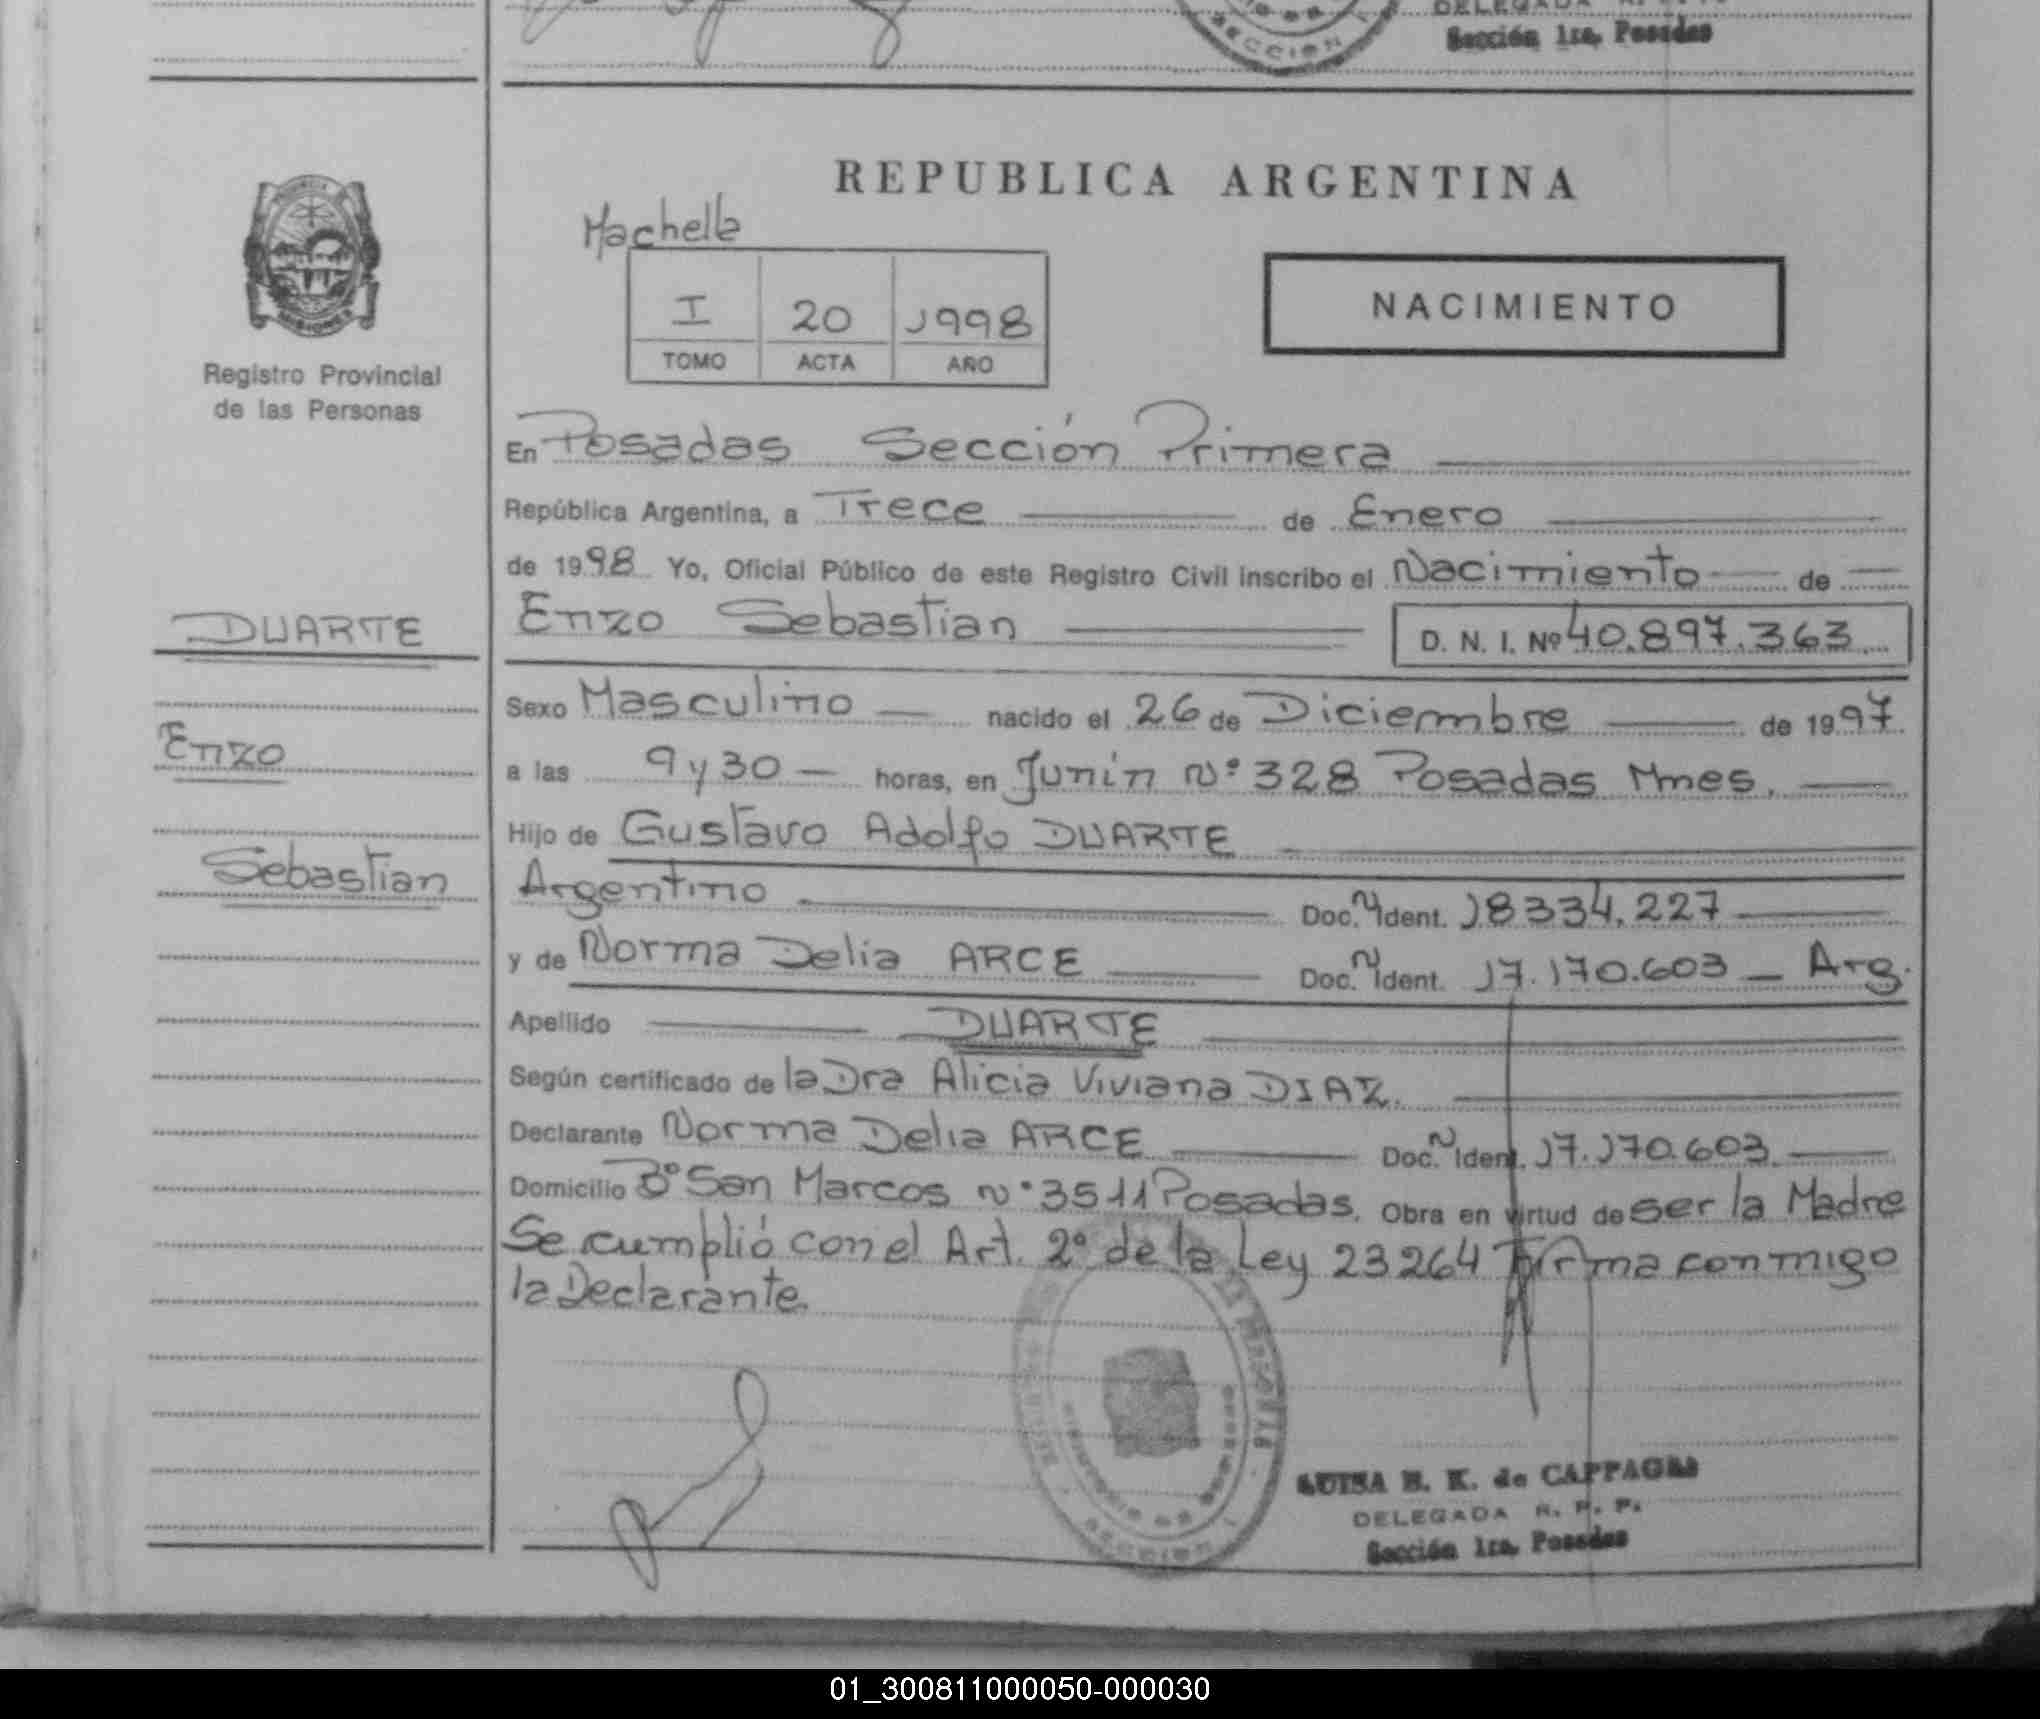 Sección 1ra. Posadas
REPUBLICA ARGENTINA
Machella
I 20 1998
TOMO ACTA AÑO
NACIMIENTO
MISIONES
Registro Provincial
de las Personas
En Posadas Sección Primera
República Argentina, a Trece de Enero
de 1998 Yo, Oficial Público de este Registro Civil inscribo el Nacimiento de
DUARTE
Enzo Sebastian D. N. I. Nº 40.897.363
Sexo Masculino nacido el 26 de Diciembre de 1997
Enzo
a las 9 y 30 horas, en Junin Nº 328 Posadas Mnes.
Hijo de Gustavo Adolfo DUARTE
Sebastian
Argentino Doc. N Ident. 18334.227
y de Norma Delia ARCE Doc. N Ident. 17.170.603 Arg.
Apellido DUARTE
Según certificado de la Dra Alicia Viviana DIAZ.
Declarante Norma Delia ARCE Doc. N Ident. 17.170.603.
Domicilio Bº San Marcos Nº 3511 Posadas. Obra en virtud de ser la Madre
Se cumplió con el Art. 2º de la Ley 23264 Firma conmigo
la Declarante.
LUISA B. K. de CAPPAGLI
DELEGADA R. P. P.
Sección 1ra. Posadas
01_300811000050-000030